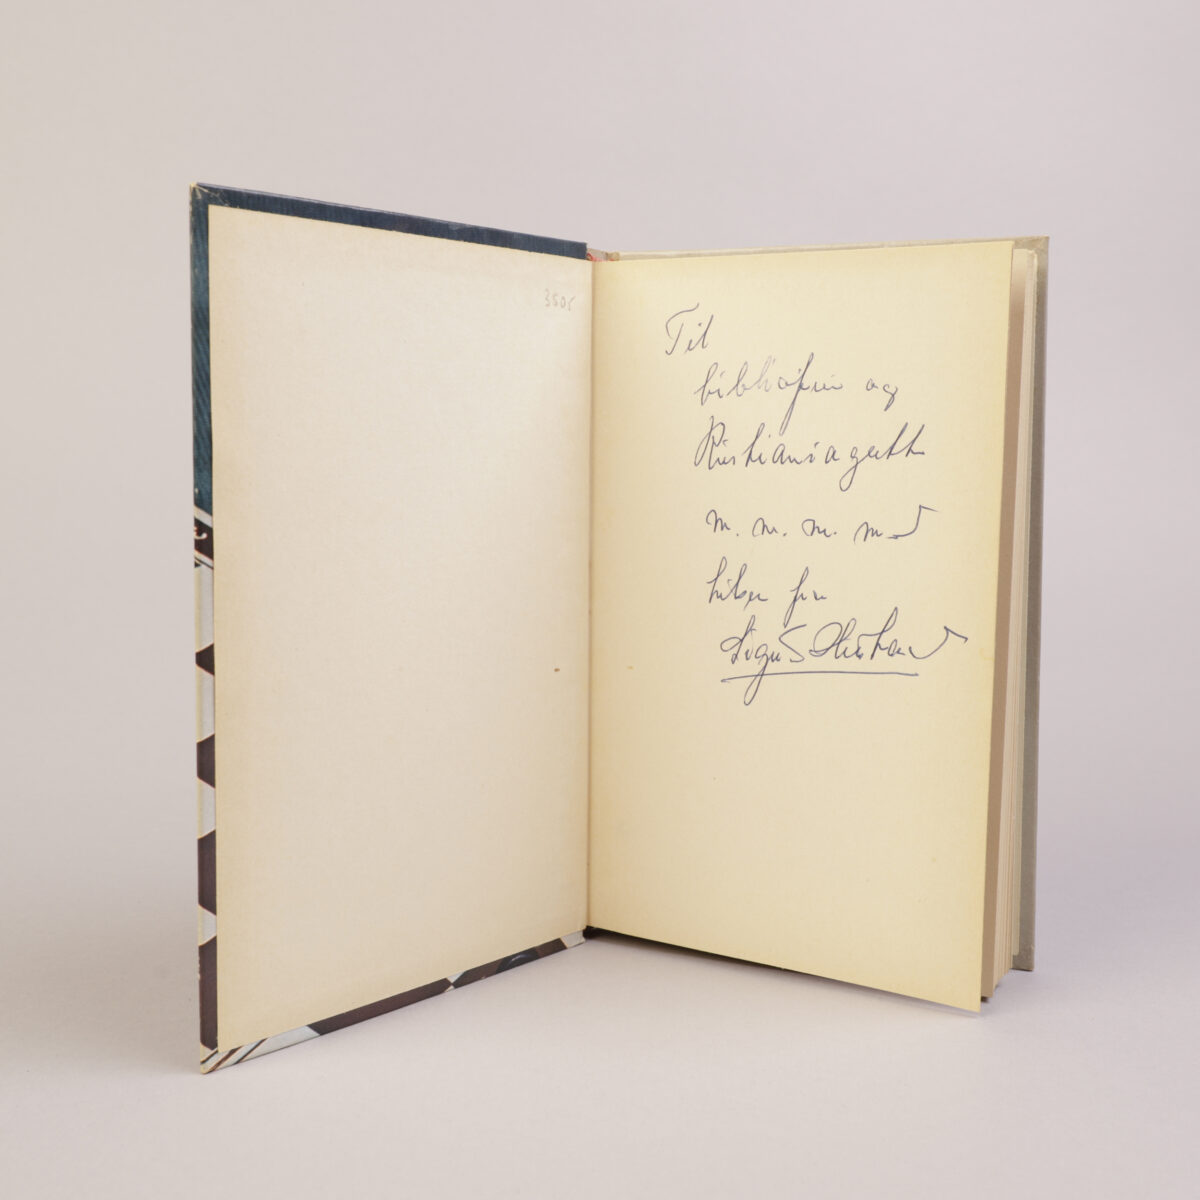 350,-
Til
bibliofilen og
Kristianiagutt
m. m. m. med
hilsen fra
Sigurd